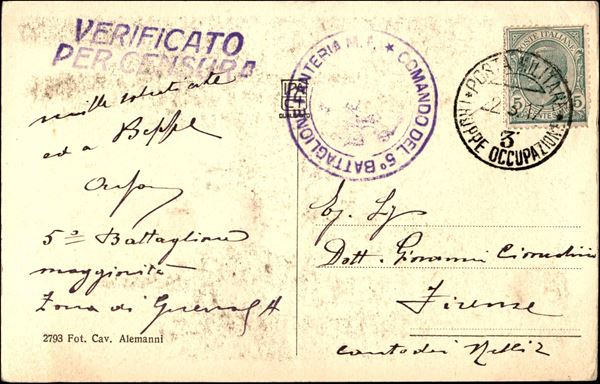 VERIFICATO
PER CENSURA
COMANDO DEL 5° BATTAGLIONE FANTERIA M.T. ★
POSTE ITALIANE
5
5
POSTA MILITARE
2. 3. 17
3ª
TRUPPE OCCUPAZIONE
mille salut
ed a Beppe
5º Battaglione
maggiorità
Zona di Guerra
2793 Fot. Cav. Alemanni
Dott. Giovanni
Firenze
canto dei Nelli 2